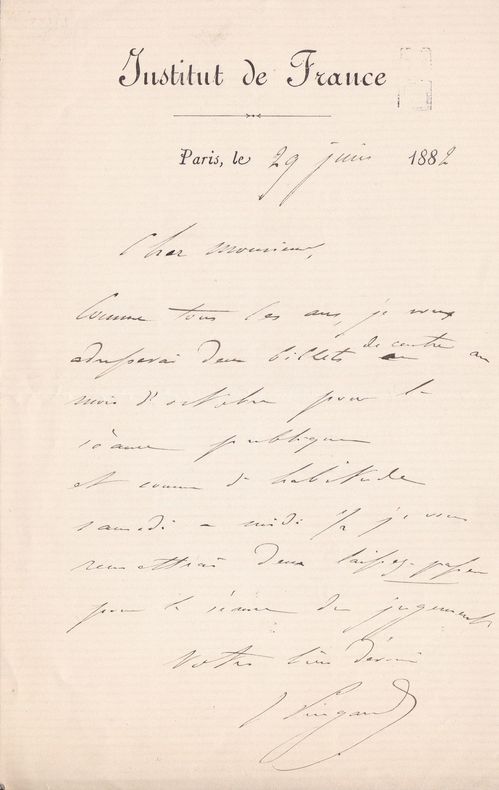 Institut de France
Paris, le 29 juin 1882
Cher Monsieur,
Comme tous les ans, je vous
adresserai deux billets de centre au
mois d'octobre pour la
séance publique
et comme d'habitude
samedi à midi ½ je vous
remettrai deux laissez-passer
pour la séance du jugement
Votre bien dévoué
J Pingard